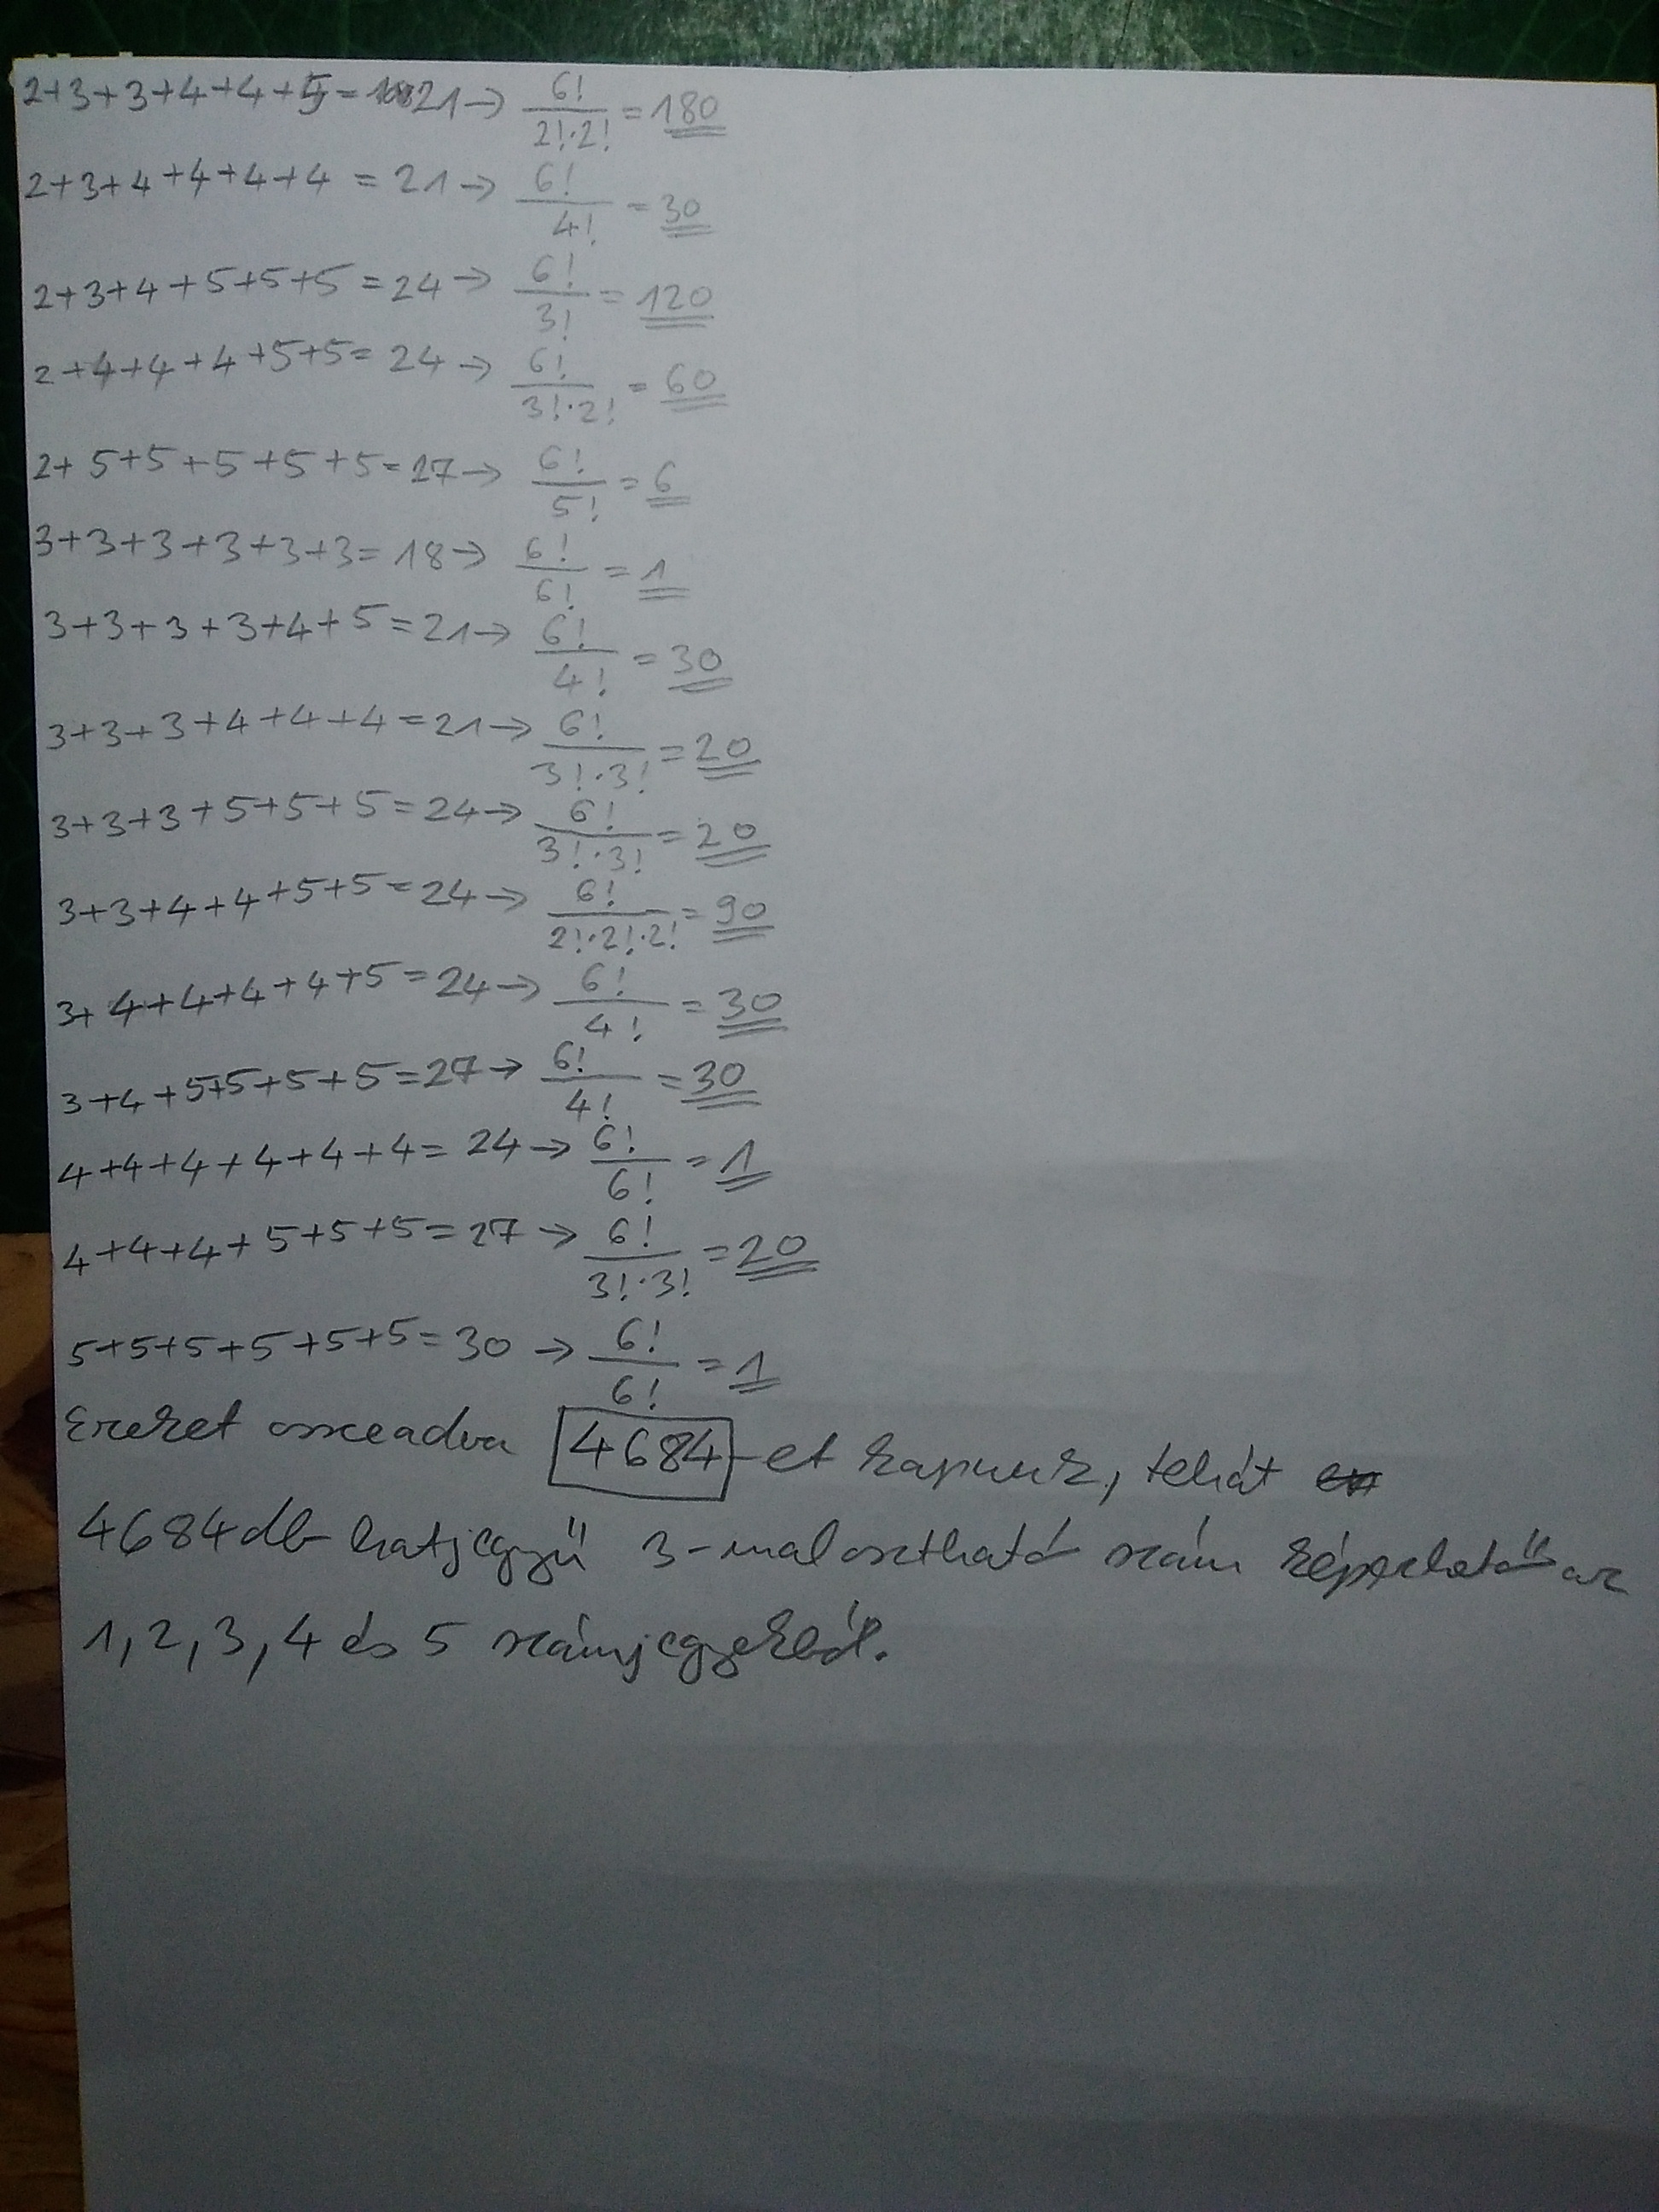 2+3+3+4+4+5=21→ 6!/(2!·2!) = 180
2+3+4+4+4+4 = 21→ 6!/4! = 30
2+3+4+5+5+5=24→ 6!/3! = 120
2+4+4+4+5+5=24→ 6!/(3!·2!) = 60
2+5+5+5+5+5=27→ 6!/5! = 6
3+3+3+3+3+3=18→ 6!/6! = 1
3+3+3+3+4+5=21→ 6!/4! = 30
3+3+3+4+4+4=21→ 6!/(3!·3!) = 20
3+3+3+5+5+5=24→ 6!/(3!·3!) = 20
3+3+4+4+5+5=24→ 6!/(2!·2!·2!) = 90
3+4+4+4+4+5=24→ 6!/4! = 30
3+4+5+5+5+5=27→ 6!/4! = 30
4+4+4+4+4+4=24→ 6!/6! = 1
4+4+4+5+5+5=27→ 6!/(3!·3!) = 20
5+5+5+5+5+5=30→ 6!/6! = 1
Ezeket összeadva 4684-et kapunk, tehát
4684 db hatjegyű 3-mal osztható szám képezhető az
1, 2, 3, 4 és 5 számjegyekből.